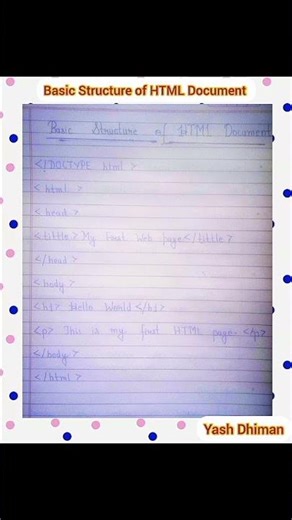 Basic Structure of HTML Document
Basic Structure of HTML Document
<!DOCTYPE html>
<html>
<head>
<tittle> My First Web page </tittle>
</head>
<body>
<h1> Hello World </h1>
<p> This is my first HTML page </p>
</body>
</html>
Yash Dhiman